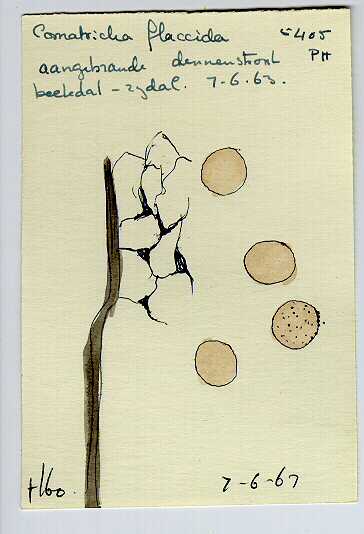 Comatricha flaccida 5405
aangebrande dennenstronk PH
beekdal - zijdal. 7-6-63.
7-6-67